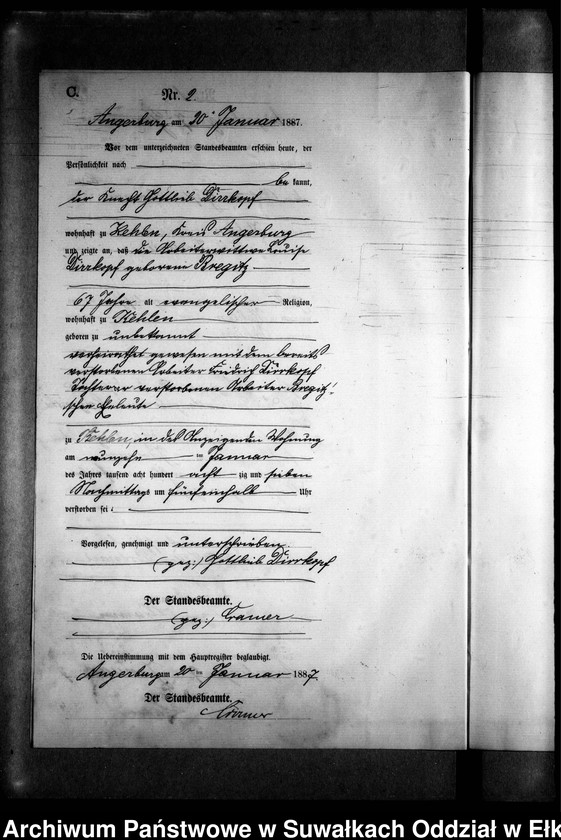 C.
Nr. 2.
Angerburg am 20ten Januar 1887.
Vor dem unterzeichneten Standesbeamten erschien heute, der
Persönlichkeit nach
be kannt,
der Knecht Gottlieb Dirrkopf
wohnhaft zu Kehlen, Kreis Angerburg
und zeigte an, daß die Arbeiterwittwe Louise
Dirrkopf geborene Kregitz
67 Jahre alt evangelischer Religion,
wohnhaft zu Kehlen
geboren zu unbekannt
verheirathet gewesen mit dem bereits
verstorbenen Arbeiter Friedrich Dirrkopf
Tochter der verstorbenen Arbeiter
schen Eheleute
zu Kehlen, in des Anzeigenden Wohnung
am neunzehn ten Januar
des Jahres tausend acht hundert acht zig und sieben
Nachmittags um fünfeinhalb Uhr
verstorben sei
Vorgelesen, genehmigt und unterschrieben.
(gez:) Gottlieb Dirrkopf
Der Standesbeamte.
(gez:) Cramer
Die Uebereinstimmung mit dem Hauptregister beglaubigt.
Angerburg am 20 ten Januar 1887.
Der Standesbeamte.
Cramer
Archiwum Państwowe w Suwałkach Oddział w Ełk